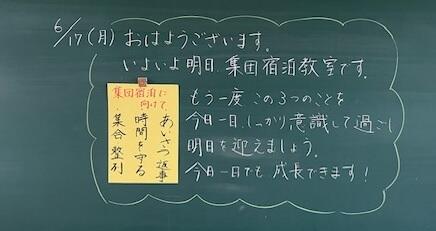 6/17(月) おはようございます。
いよいよ明日、集団宿泊教室です。
もう一度 この3つのことを
今日一日、しっかり意識して過ごし
明日を迎えましょう。
今日一日でも 成長できます!
集団宿泊に
向けて
あいさつ 返事
時間を守る
・集合 整列